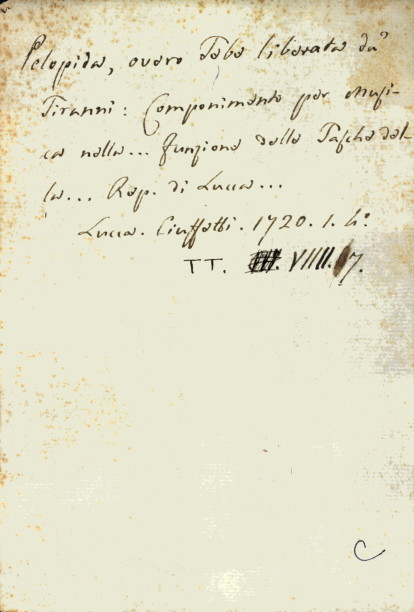 Pelopida, ovvero Tebe liberata da'
Tiranni: Componimento per Musi-
ca nella... funzione delle Tasche del-
la... Rep. di Lucca...
Lucca. Ciuffetti. 1720. 1. 4°.
TT. VIIII. 7.
C